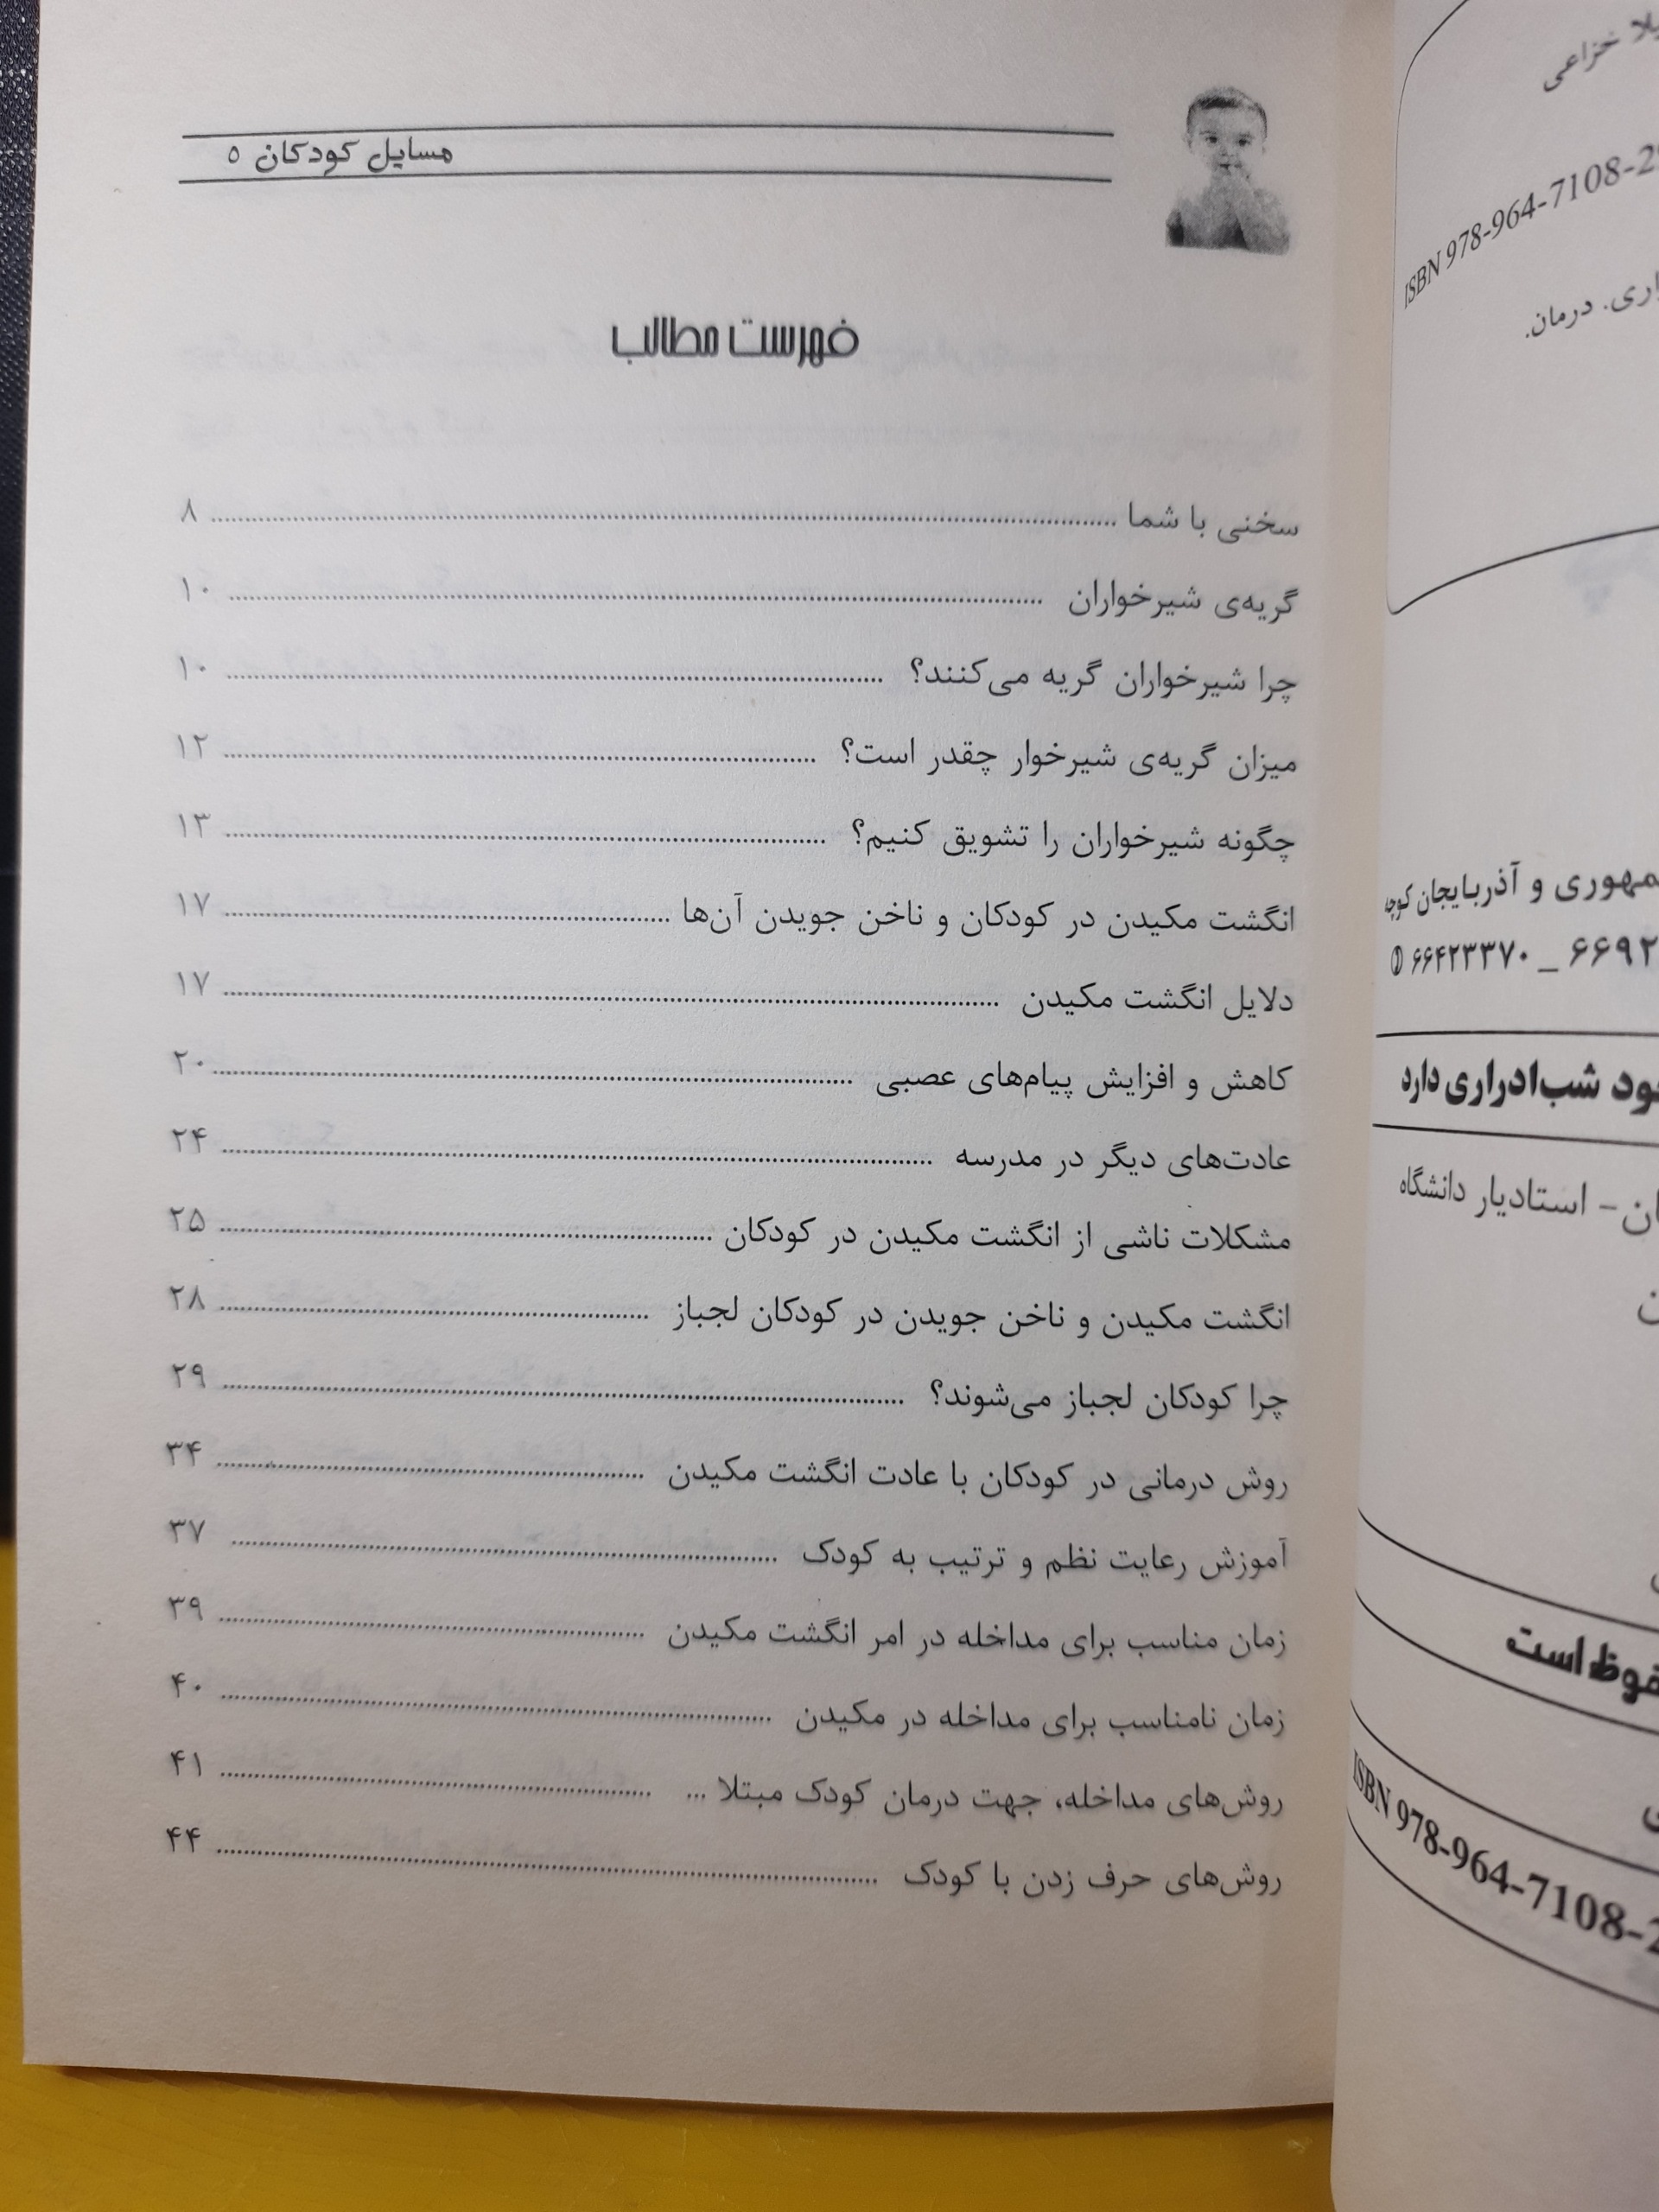 مسایل کودکان ۵
فهرست مطالب
سخنی با شما ........ ۸
گریه‌ی شیرخواران ........ ۱۰
چرا شیرخواران گریه می‌کنند؟ ........ ۱۰
میزان گریه‌ی شیرخوار چقدر است؟ ........ ۱۲
چگونه شیرخواران را تشویق کنیم؟ ........ ۱۳
انگشت مکیدن در کودکان و ناخن جویدن آن‌ها ........ ۱۷
دلایل انگشت مکیدن ........ ۱۷
کاهش و افزایش پیام‌های عصبی ........ ۲۰
عادت‌های دیگر در مدرسه ........ ۲۴
مشکلات ناشی از انگشت مکیدن در کودکان ........ ۲۵
انگشت مکیدن و ناخن جویدن در کودکان لجباز ........ ۲۸
چرا کودکان لجباز می‌شوند؟ ........ ۲۹
روش درمانی در کودکان با عادت انگشت مکیدن ........ ۳۴
آموزش رعایت نظم و ترتیب به کودک ........ ۳۷
زمان مناسب برای مداخله در امر انگشت مکیدن ........ ۳۹
زمان نامناسب برای مداخله در مکیدن ........ ۴۰
روش‌های مداخله، جهت درمان کودک مبتلا ... ........ ۴۱
روش‌های حرف زدن با کودک ........ ۴۴
خزاعی
ISBN 978-964-7108-2
درمان.
و آذربایجان کوچه
۶۶۹۲ _ ۶۶۴۲۳۳۷۰
شب‌ادراری دارد
– استادیار دانشگاه
است
ISBN 978-964-7108-2